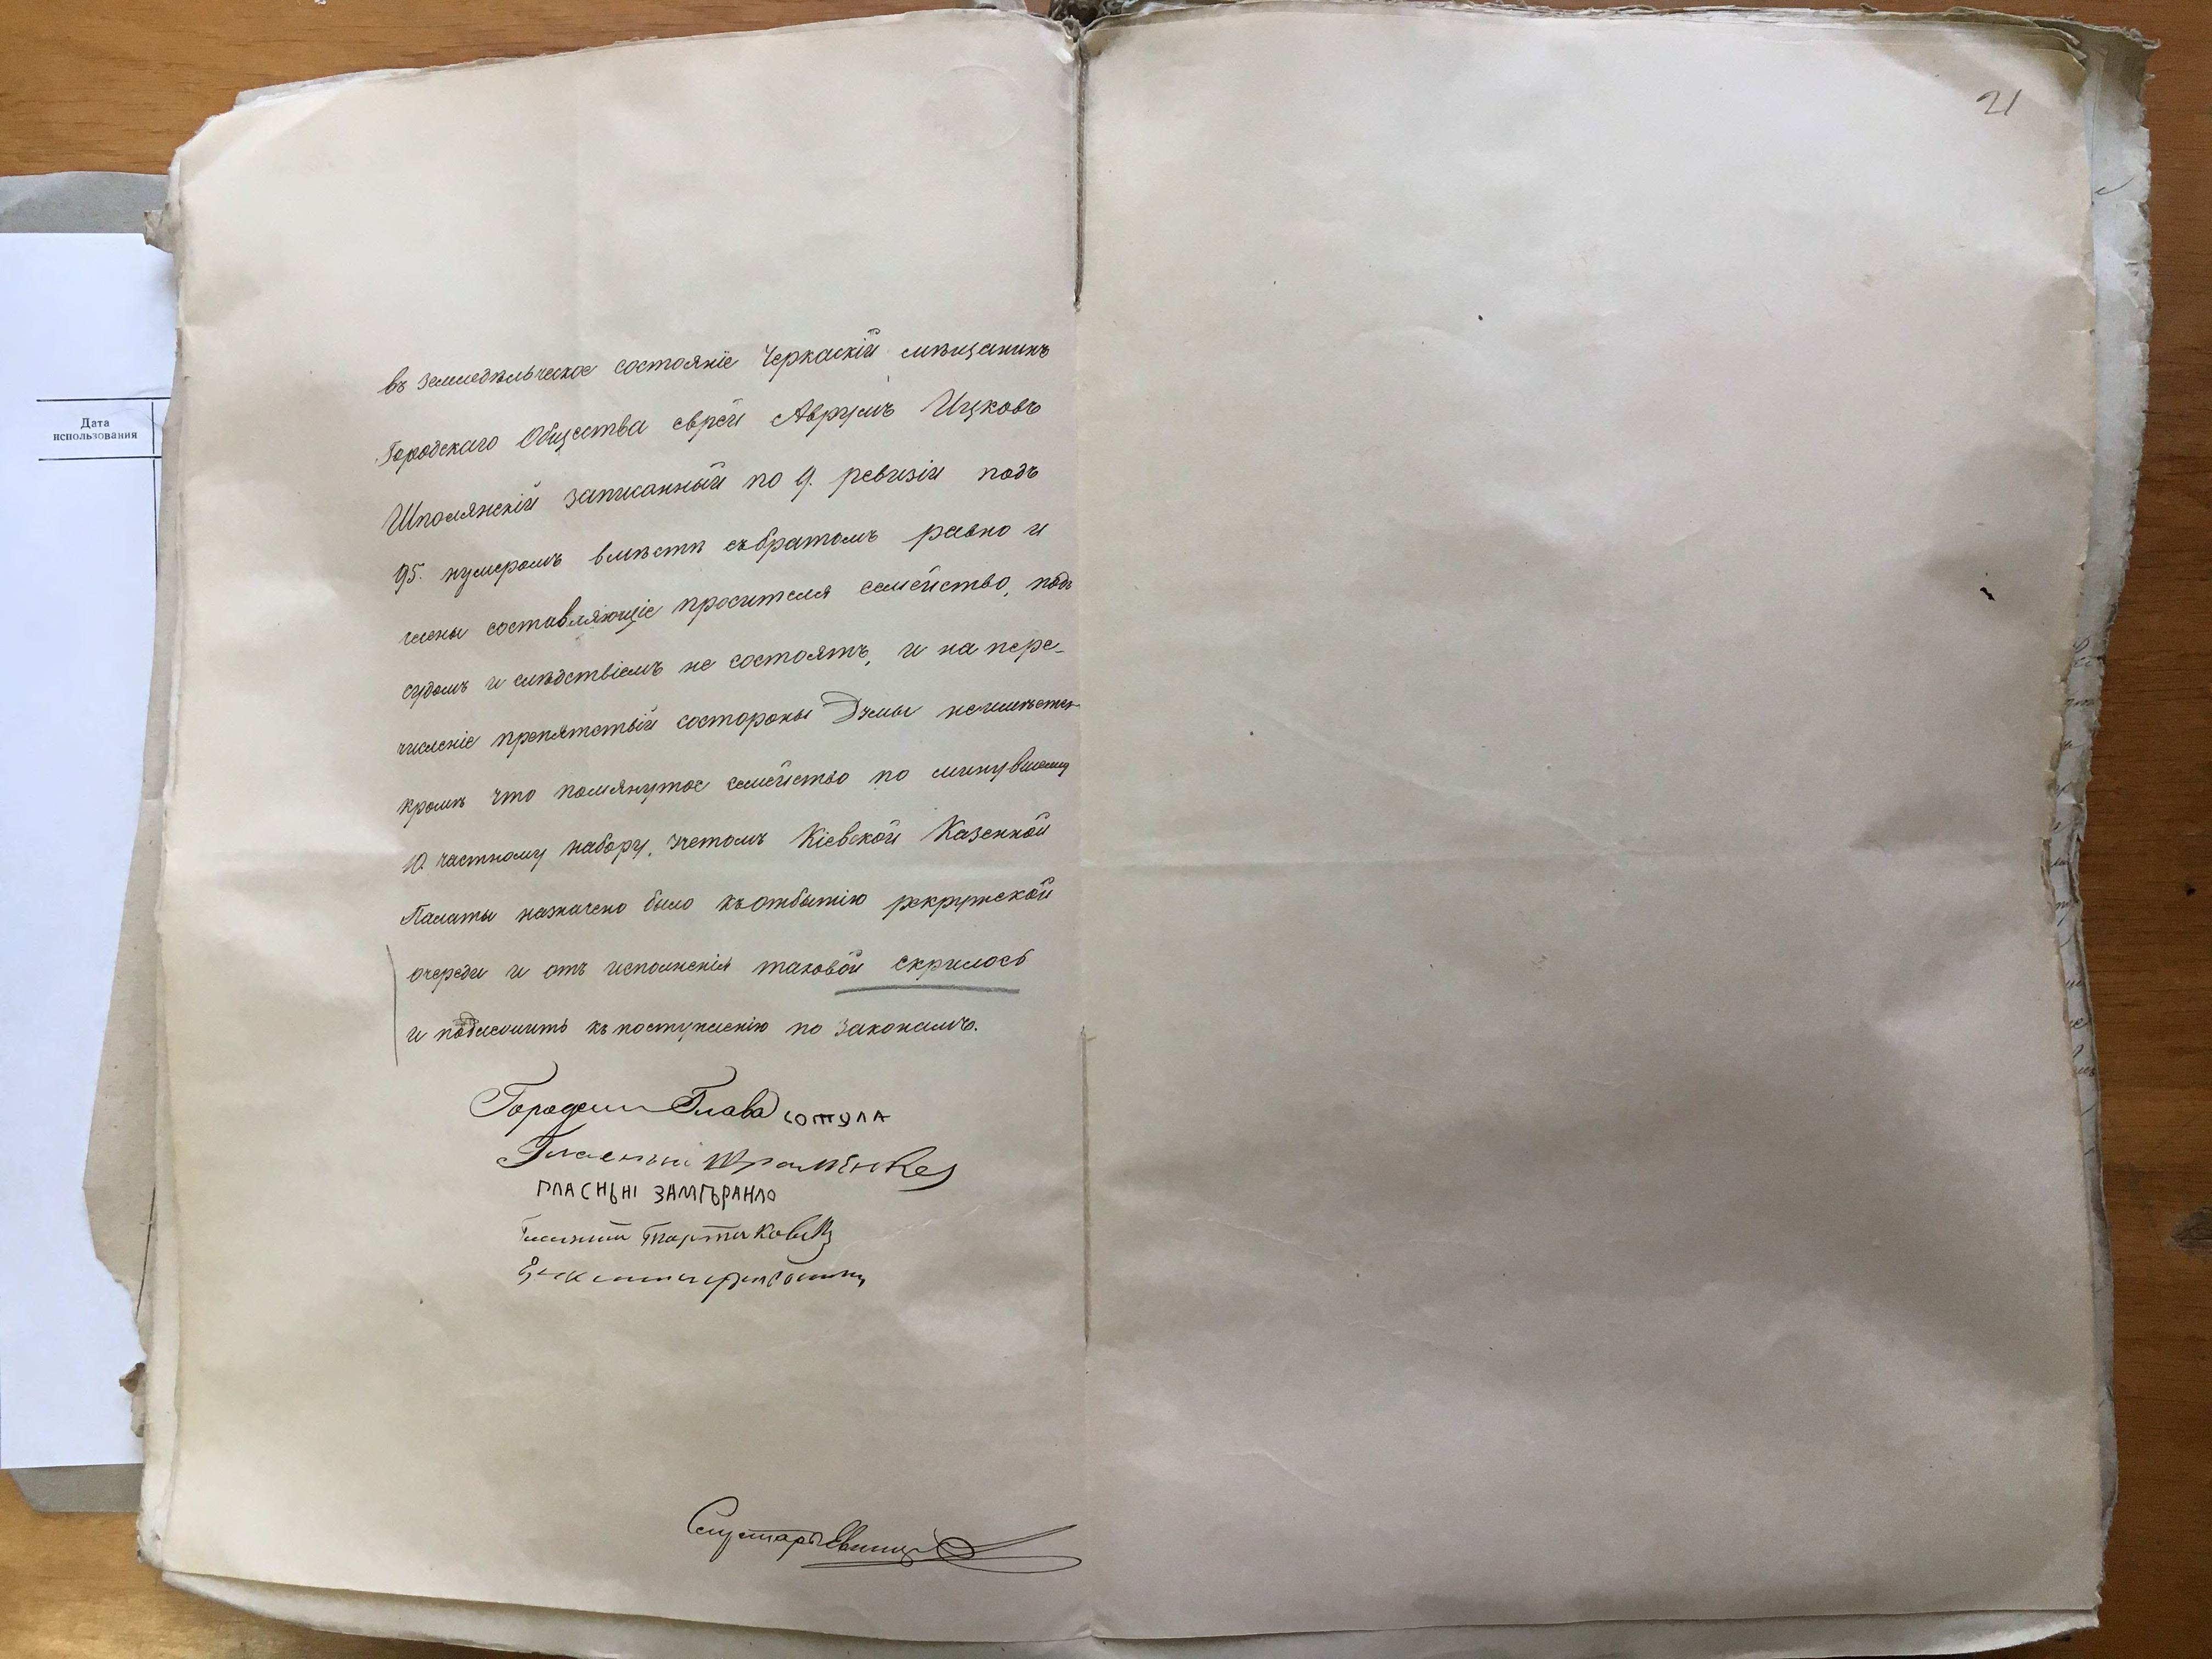 21
Дата
использования
въ земледѣльческое состояніе Черкаскій мѣщанинъ
Городскаго Общества еврей Аврумъ Ицковъ
Шполянскій записанный по 9. ревизіи подъ
95. нумеромъ вмѣстѣ съ братомъ равно и
члены составляющіе просителя семейство, подъ
судомъ и слѣдствіемъ не состоятъ, и на пере-
численіе препятствій состороны Думы неимѣется
кромѣ что помянутое семейство по минувшему
10. частному набору, учетомъ Кіевской Казенной
Палаты назначено было къ отбытію рекрутской
очереди и отъ исполненія таковой скрилось
и подлежитъ къ поступленію по законамъ.
Городской Глава сотула
Гласный
ГЛАСНЫІ
Гласный Тартаковскій